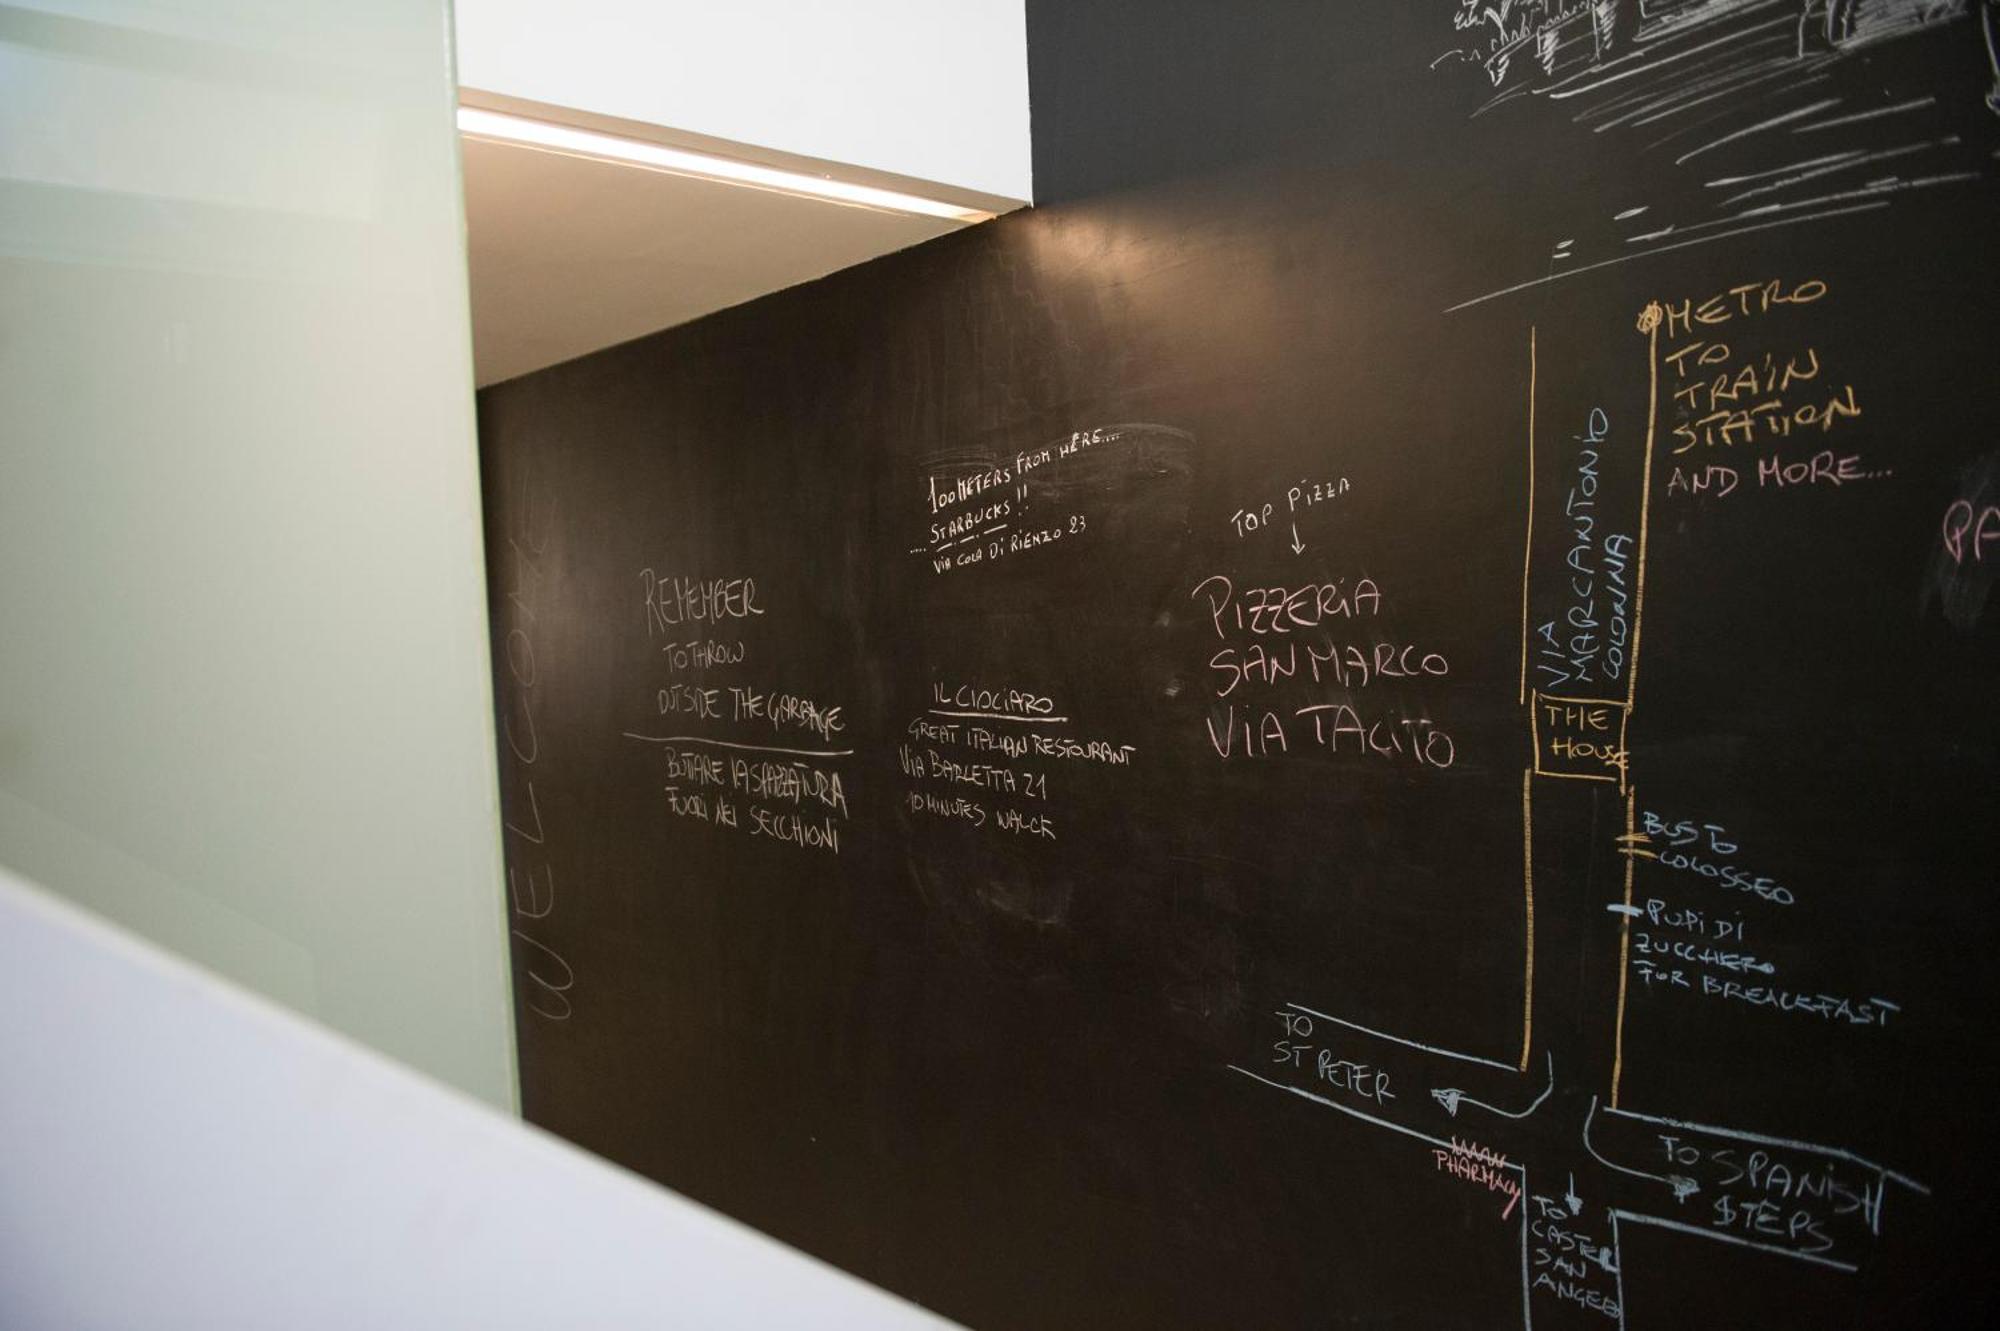 WELCOME
REMEMBER
TO THROW
OUTSIDE THE GARBAGE
BUTTARE LA SPAZZATURA
FUORI NEI SECCHIONI
100 METERS FROM HERE....
.... STARBUCKS !!
VIA COLA DI RIENZO 23
IL CIOCIARO
GREAT ITALIAN RESTOURANT
VIA BARLETTA 21
10 MINUTES WALCK
TOP PIZZA
PIZZERIA
SAN MARCO
VIA TACITO
METRO
TO
TRAIN
STATION
AND MORE...
VIA
MARCANTONIO
COLONNA
THE
HOUSE
BUS TO
COLOSSEO
PUPI DI
ZUCCHERO
FOR BREACKFAST
TO
ST PETER
PHARMACY
TO SPANISH
STEPS
TO
CASTEL
SAN
ANGELO
PA